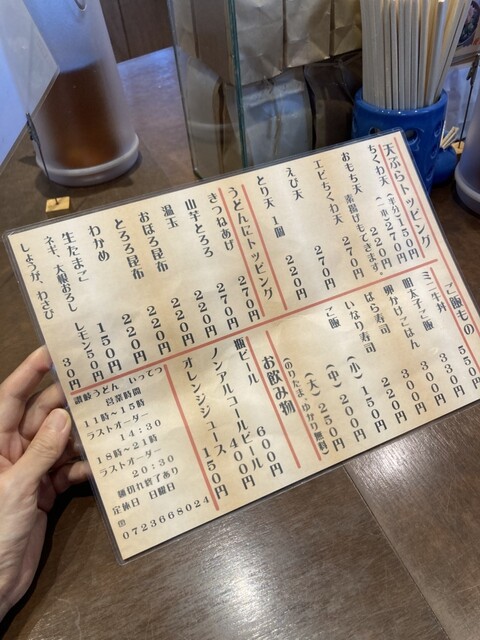 天ぷらトッピング
ちくわ天 (半分)150円
(一本)220円
おもち天 素揚げもできます。
エビちくわ天 270円
えび天 270円
とり天 1個 220円
うどんにトッピング
きつねあげ 270円
山芋とろろ 270円
温玉 220円
おぼろ昆布 220円
とろろ昆布 220円
わかめ 150円
生たまご 50円
ネギ、大根おろし レモン
しょうが、わさび 30円
ご飯もの
ミニ牛丼 550円
明太子ご飯 300円
卵かけごはん 300円
ばら寿司 220円
いなり寿司 150円
ご飯 (小)150円
(中)200円
(大)250円
(のりたま、ゆかり無料)
お飲み物
瓶ビール 600円
ノンアルコールビール 400円
オレンジジュース 150円
讃岐うどん いってつ
営業時間
11時〜15時
ラストオーダー
14:30
18時〜21時
ラストオーダー
20:30
麺切れ終了あり
定休日 日曜日
☎
0723668024